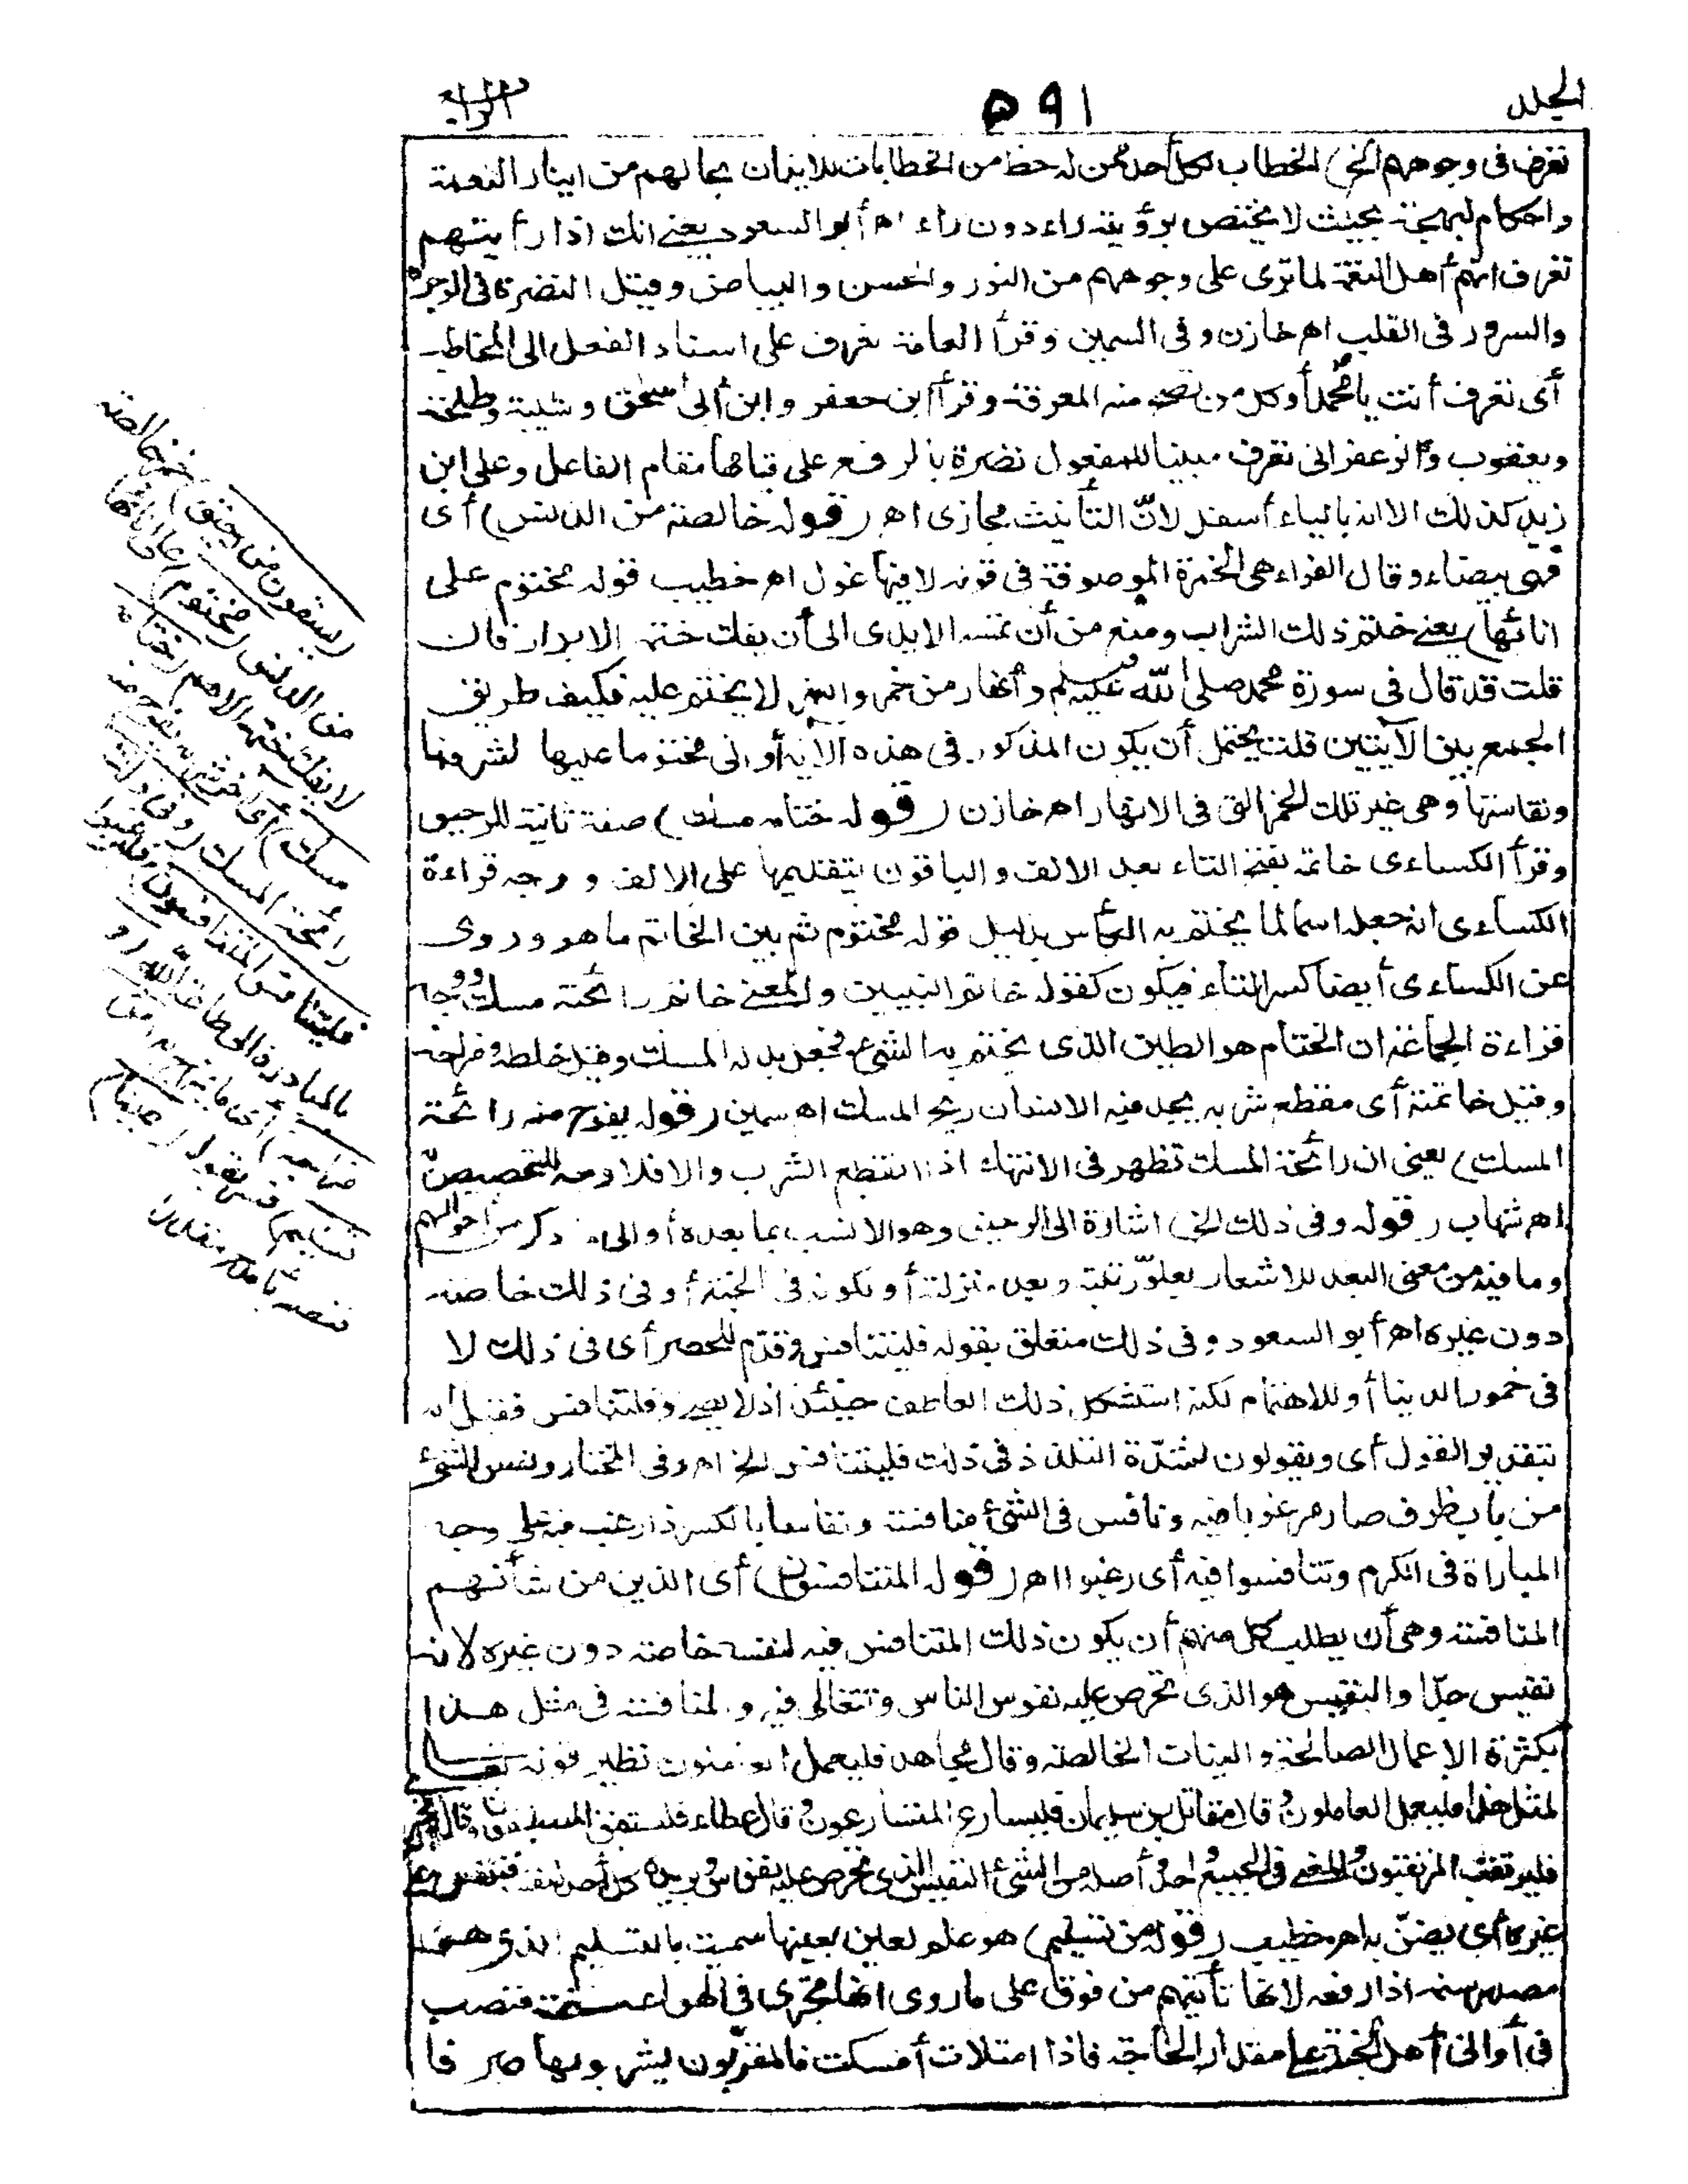 الجلد
٥٩١
الرابع
تعرف فى وجوههم الخ) الخطاب لكل أحد ممن له حظ من الخطابات للايذان بمالهم من اٰثار النعمة
واحكام البهجة بحيث لا يختص برؤيته راء دون راء اھ أبو السعود يعنى انك اذا رأيتهم
تعرف انهم أهل النعمة لما ترى على وجوههم من النور والحسن والبياض وقيل النضرة فى الوجه
والسرور فى القلب اھ خازن وفى السمين وقرأ العامة تعرف على اسناد الفعل الى المخاطب
أى تعرف أنت يا محمد أو كل من تصح منه المعرفة وقرأ ابن جعفر وابن أبى اسحق وشيبة وطلحة
ويعقوب والزعفرانى تعرف مبنيا للمفعول نضرة بالرفع على قيامها مقام الفاعل وعلى ابن
زيد كذلك الا انه بالياء أسفل لانّ التأنيث مجازى اھ (قوله خالصة من الدنس) أى
فهى بيضاء وقال القراء هى الخمرة الموصوفة فى قوله لا فيها غول اھ خطيب قوله مختوم على
انائها) يعنى ختم ذلك الشراب ومنع من أن تمسه الايدى الى أن يفك ختمه الابرار فان
قلت قد قال فى سورة محمد صلى الله عليه وسلم وأنهار من خمر والنهر لا يختم عليه فكيف طريق
الجمع بين الآيتين قلت يحتمل أن يكون المذكور فى هذه الآية أوانى مختوما عليها لشرفها
ونفاستها وهى غير تلك الخمر التى فى الانهار اھ خازن (قوله ختامه مسك) صفة ثانية للرحيق
وقرأ الكساءى خاتمه بفتح التاء بعد الالف والباقون بتقديمها على الالف ووجه قراءة
الكساءى انه جعله اسما لما يختم به الكأس بدليل قوله مختوم ثم بين الخاتم ما هو وروى
عن الكساءى أيضا كسر التاء فيكون كقوله خاتم النبيين والمعنى خاتم رائحته مسك ووجه
قراءة الجماعة ان الختام هو الطين الذى يختم به الشئ فجعل بدله المسك وقيل خلطه ومزاجه
وقيل خاتمته أى مقطع شربه يجد فيه الانسان ريح المسك اھ سمين (قوله يفوح منه رائحة
المسك) يعنى ان رائحة المسك تظهر فى الانتهاء اذا انقطع الشرب والا فلا وجه للتخصيص
اھ شهاب (قوله وفى ذلك الخ) اشارة الى الرحيق وهو الانسب بما بعده أو الى ما ذكر من أحوالهم
وما فيه من معنى البعد للاشعار بعلوّ رتبته وبعد منزلته أو لكونه فى الجنة أو فى ذلك خاصة
دون غيره اھ أبو السعود وفى ذلك متعلق بقوله فليتنافس وقدّم للحصر أى فى ذلك لا
فى خمور الدنيا أو للاهتمام لكنه استشكل ذلك العاطف حينئذ اذ لا يصير وفلتنافس فقيل انه
بتقدير القول أى ويقولون لشدّة التلذذ فى ذلك فليتنافس الخ اھ وفى المختار ونفس الشئ
من باب ظرف صار مرغوبا فيه ونافس فى الشئ منافسة ونفاسا بالكسر اذا رغب فيه على وجه
المباراة فى الكرم وتنافسوا فيه أى رغبوا اھ (قوله المتنافسون) أى الذين من شأنهم
المنافسة وهى أن يطلب كل منهم أن يكون ذلك المتنافس فيه لنفسه خاصة دون غيره لانه
نفيس جدّا والنفيس هو الذى تحرص عليه نفوس الناس وتتغالى فيه والمنافسة فى مثل هذا
بكثرة الاعمال الصالحة والنيات الخالصة وقال مجاهد فليعمل العاملون نظيره قوله تعالى
لمثل هذا فليعمل العاملون وقال مقاتل بن سليمان فليسارع المتسارعون وقال عطاء فليستبق المستبقون وقال
فليرتغب المرتغبون والمعنى فى الجميع واحد وأصله من الشئ النفيس الذى تحرص عليه نفوس ويريده كل أحد لنفسه
غيره أى يضنّ به اھ خطيب (قوله من تسنيم) هو علم لعين بعينها سميت بالتسنيم الذى هو
مصدر سنمه اذا رفعه لانها تأتيهم من فوق على ما روى انها تجرى فى الهواء متسنمة فتنصب
فى أوانى أهل الجنة على مقدار الحاجة فاذا امتلات أمسكت فالمقرّبون يشربونها صرفا
(يسقون من رحيق) خمر خالصة
من الدنس (مختوم) على انائها
لا يفك ختمه الا هم (ختامه
مسك) أى آخر شربه يفوح منه
رائحة المسك (وفى ذلك
فليتنافس المتنافسون) فليرغبوا
بالمبادرة الى طاعة الله (و
مزاجه) أى ما يمزج به (من
تسنيم) فسر بقوله (عينا)
فنصبه بامدح مقدرا